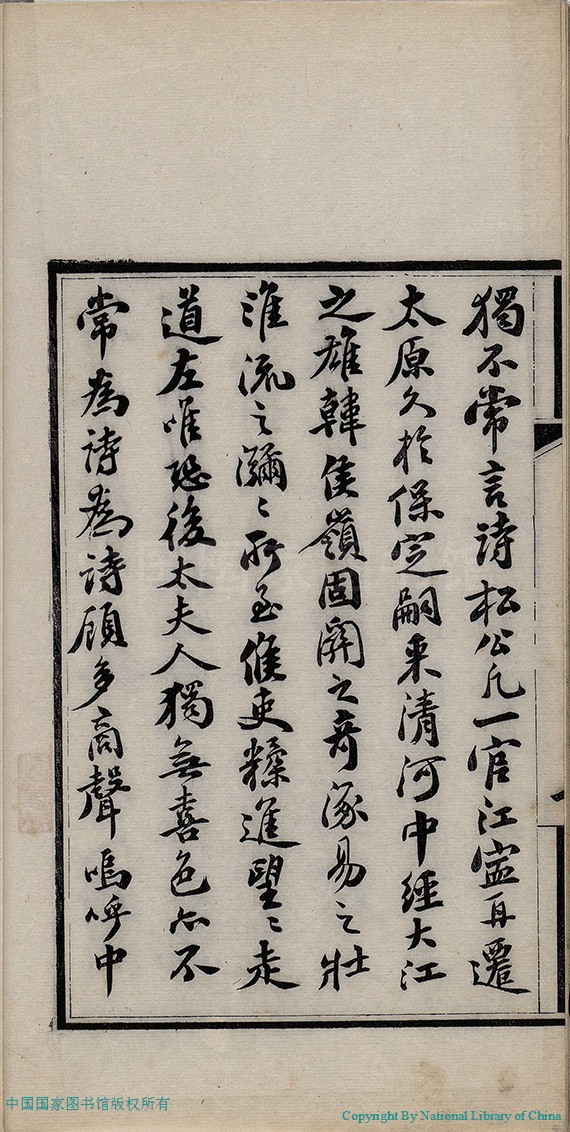 獨不常言詩松公凡一官江寍再遷
太原久於保定嗣來清河中經大江
之雄韓侯嶺固關之奇涿易之壯
淮流之瀰〻所至候吏糅進望〻走
道左唯恐後太夫人獨無喜色亦不
常為詩為詩顧多商聲嗚呼中
中国国家图书馆版权所有
Copyright By National Library of China